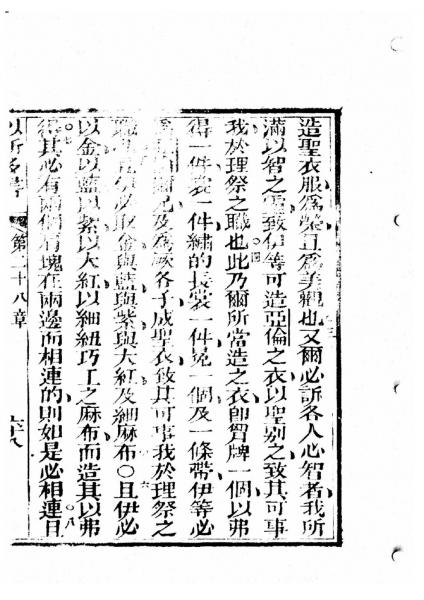 造聖衣服爲榮且爲美觀也又爾必訴各人心智者我所
滿以智之靈致伊等可造亞倫之衣以聖別之致其可事
我於理祭之職也此乃爾所當造之衣卽胷牌一個以弗
得一件裳一件繡的長裳一件冕一個及一條帶伊等必
爾兄及爲厥各子成聖衣致其可事我於理祭之
必取金與藍與紫與大紅及細麻布〇且伊必
以金以藍以紫以大紅以細紐巧工之麻布而造其以弗
得其必有兩個肩塊在兩邊而相連的則如是必相連且
第二十八章